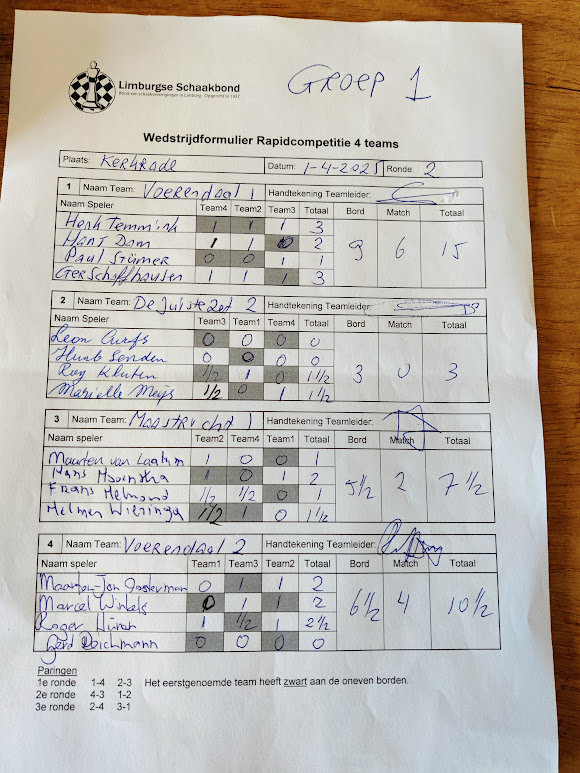 Limburgse Schaakbond
Bond van schaakverenigingen in Limburg - Opgericht in 1922
GROEP 1
Wedstrijdformulier Rapidcompetitie 4 teams
Plaats: Kerkrade Datum: 1-4-2025 Ronde: 2
1 Naam Team: Voerendaal 1 Handtekening Teamleider:
Naam Speler Team4 Team2 Team3 Totaal Bord Match Totaal
Henk Temmink 1 1 1 3
Hans Dam 1 1 0 2
Paul Stürmer 0 0 1 1
Ger Schafhausen 1 1 1 3
9 6 15
2 Naam Team: De Juiste Zet 2 Handtekening Teamleider:
Naam Speler Team3 Team1 Team4 Totaal Bord Match Totaal
Leon Curfs 0 0 0 0
Huub Senden 0 0 0 0
Roy Kluten 1/2 1 0 1 1/2
Marielle Meijs 1/2 0 1 1 1/2
3 0 3
3 Naam Team: Maastricht 1 Handtekening Teamleider:
Naam speler Team2 Team4 Team1 Totaal Bord Match Totaal
Maarten van Laatum 1 0 0 1
Hans 1 0 1 2
Frans Helmond 1/2 1/2 0 1
Helmer Wieringa 1/2 1 0 1 1/2
5 1/2 2 7 1/2
4 Naam Team: Voerendaal 2 Handtekening Teamleider:
Naam Speler Team1 Team3 Team2 Totaal Bord Match Totaal
Maarten-Jan Oosterman 0 1 1 2
Marcel Winkels 0 1 1 2
Roger 1 1/2 1 2 1/2
Gerd Deichmann 0 0 0 0
6 1/2 4 10 1/2
Paringen
1e ronde 1-4 2-3 Het eerstgenoemde team heeft zwart aan de oneven borden.
2e ronde 4-3 1-2
3e ronde 2-4 3-1